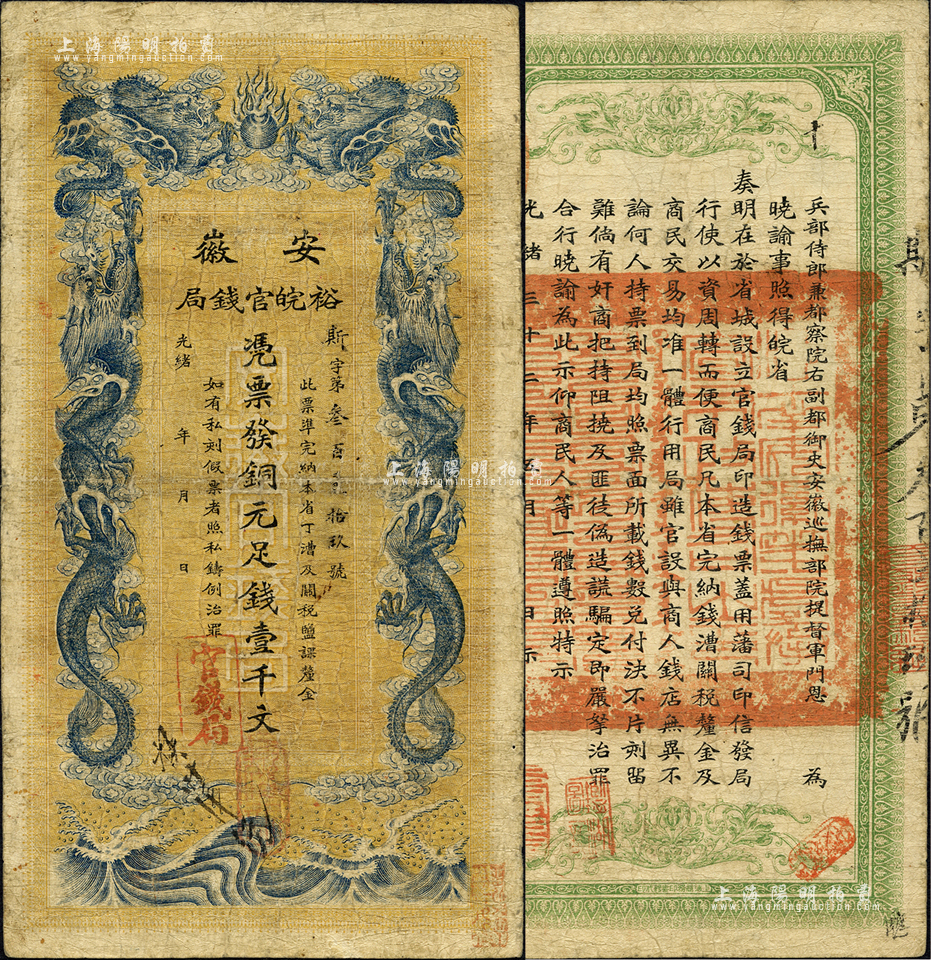 上海陽明拍賣
www.yangmingauction.com
安徽
裕皖官錢局
斯字第叁百貳拾玖號
此票準完納本省丁漕及關稅鹽課釐金
憑票發銅元足錢壹千文
如有私刻假票者照私鑄例治罪
光緒 年 月 日
官錢局
上海陽明拍賣
www.yangmingauction.com
兵部侍郎兼都察院右副都御史安徽巡撫部院提督軍門恩 為
曉諭事照得皖省
奏明在於省城設立官錢局印造錢票蓋用藩司印信發局
行使以資周轉而便商民凡本省完納錢漕關稅釐金及
商民交易均准一體行用局雖官設與商人錢店無異不
論何人持票到局均照票面所載錢數兌付決不片刻留
難倘有奸商把持阻撓及匪徒偽造謊騙定即嚴拏治罪
合行曉諭為此示仰商民人等一體遵照特示
光緒三十二年五月 日示
上海陽明拍賣
www.yangmingauction.com